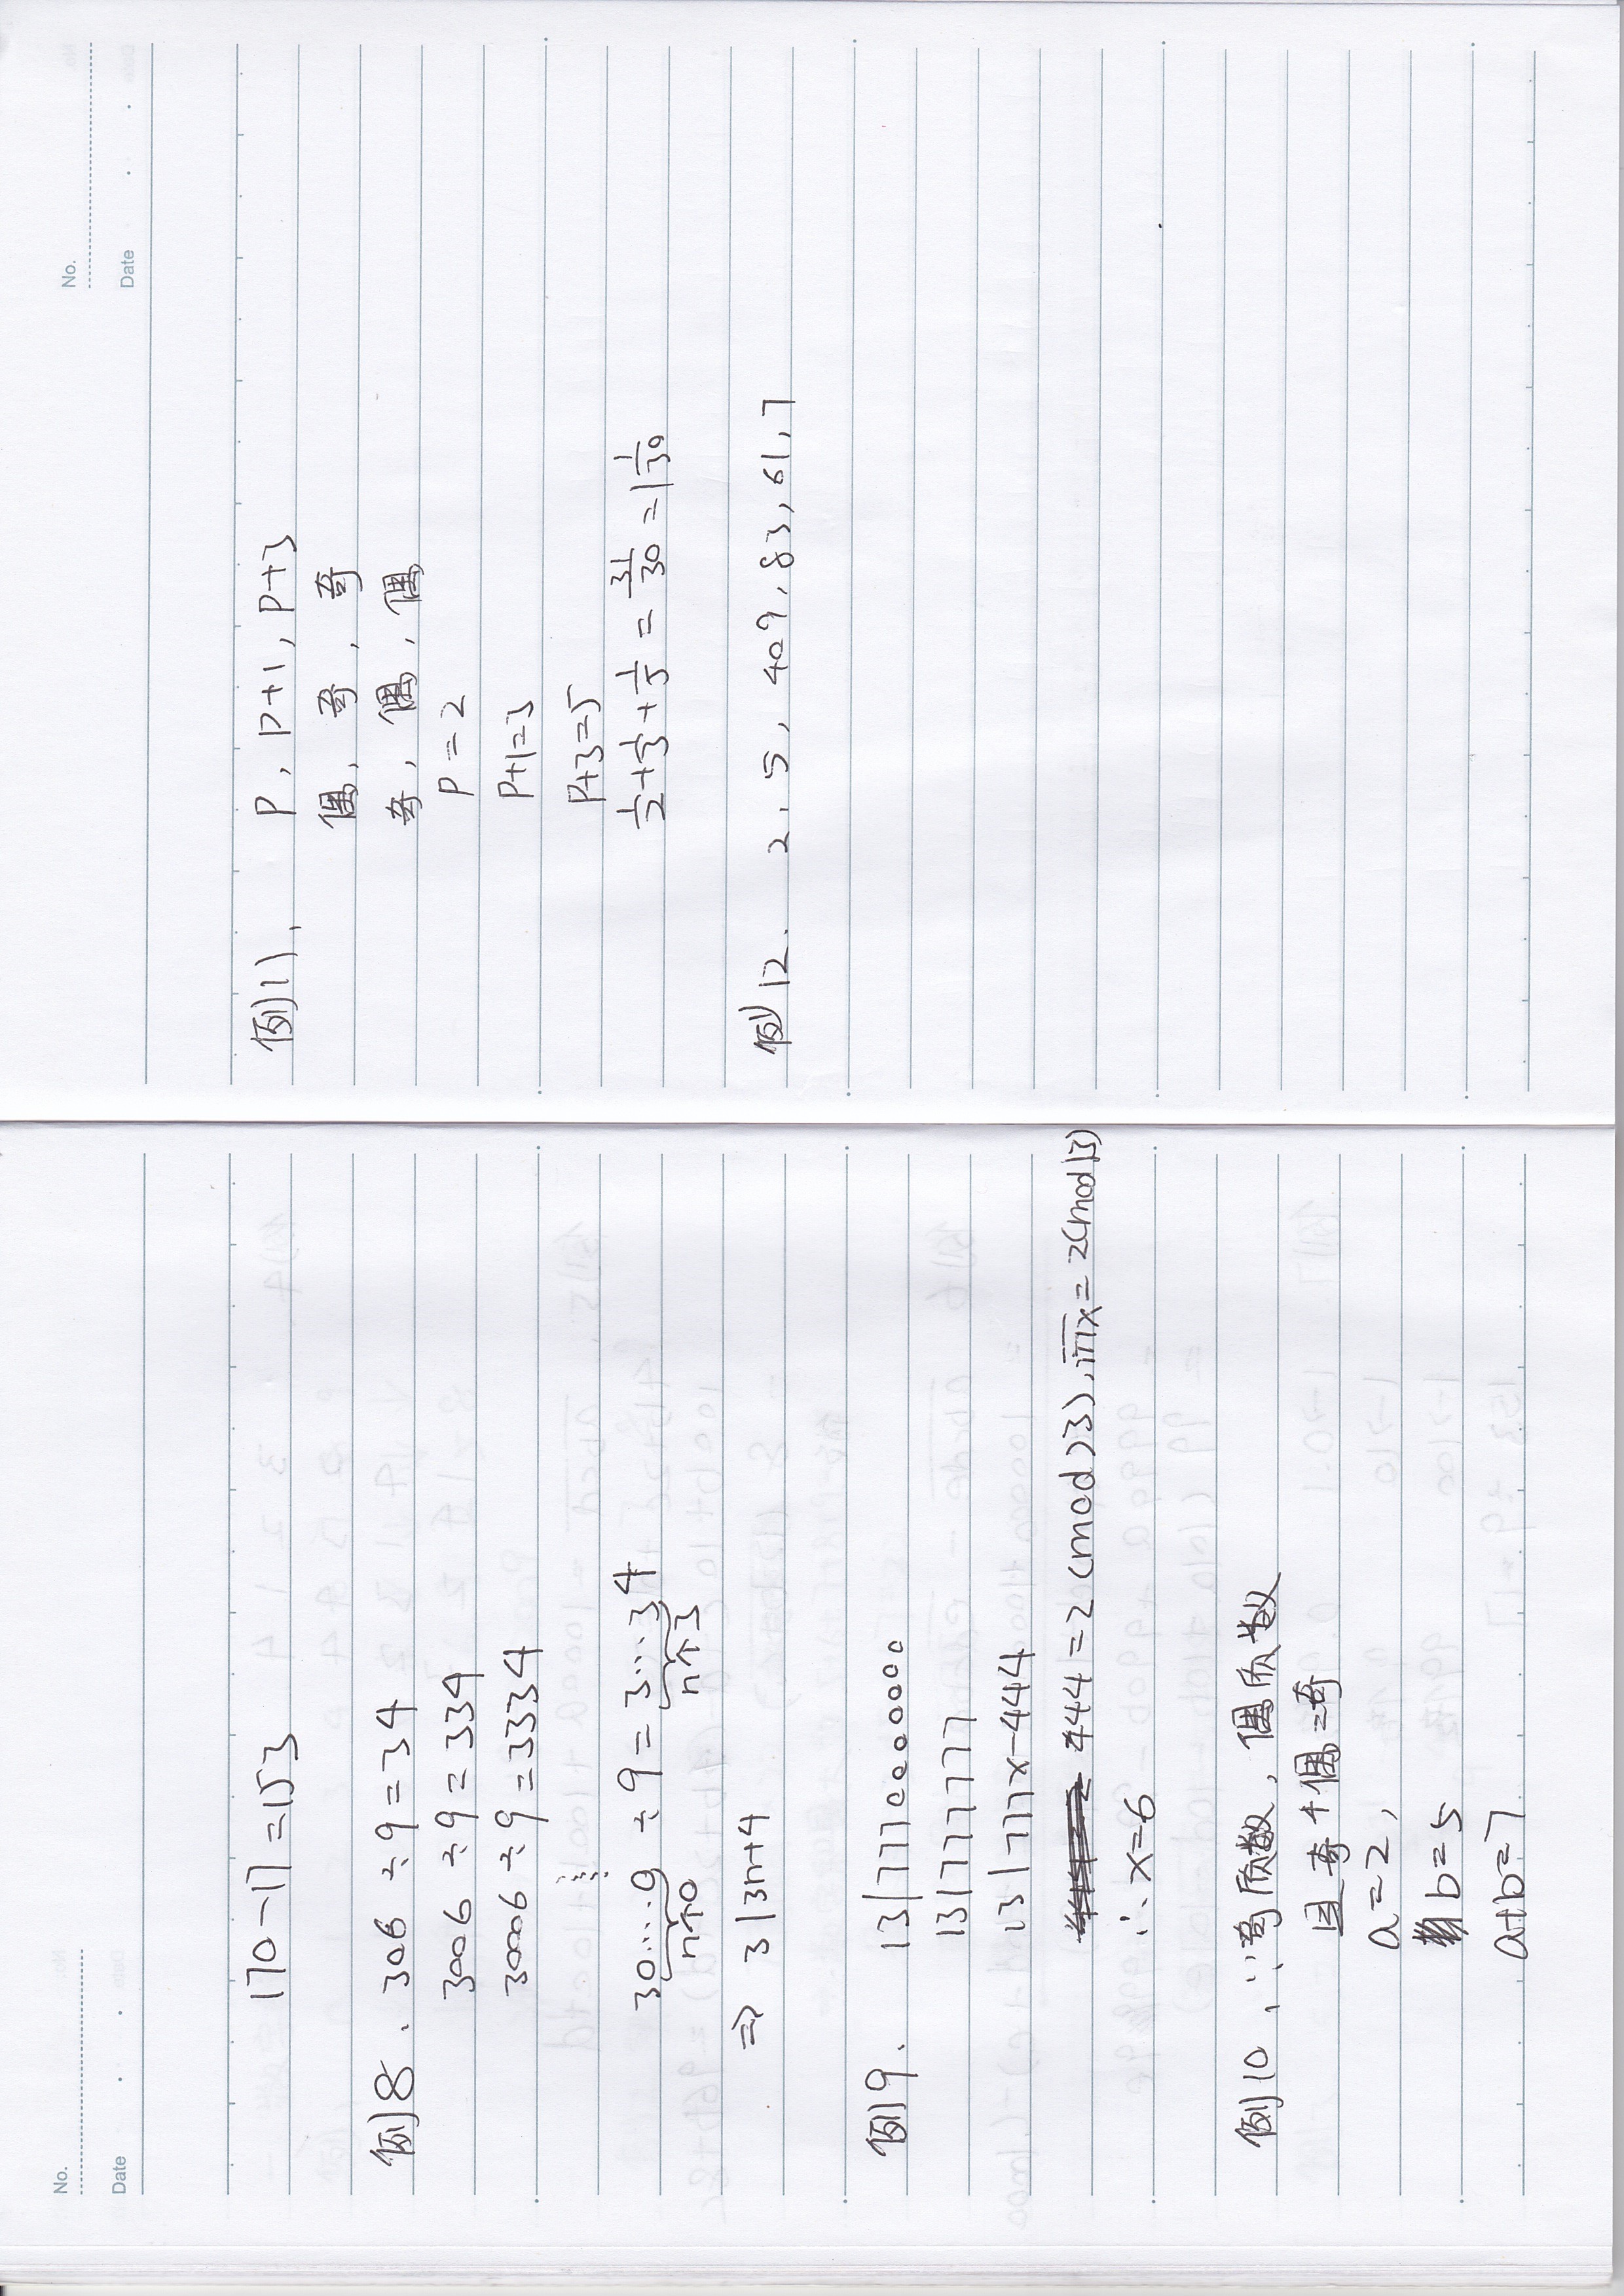 No.
Date
170-17=153
例8、306÷9=34
3006÷9=334
30006÷9=3334
⋮
30…0 ÷9=3…34
n个0 n个3
⇒ 3|3n+4
例9、 13|7770000000
13|777777
13|777x-444
444=2(mod13), 777x=2(mod13)
∴x=6
例10、∵奇质数,偶质数
且奇+偶=奇
a=2,
b=5
a+b=7
No.
Date
例11、 P, P+1, P+3
偶,奇,奇
奇,偶,偶
P=2
P+1=3
P+3=5
1/2+1/3+1/5=31/30=1 1/30
例12、 2, 5, 409, 83, 61, 7